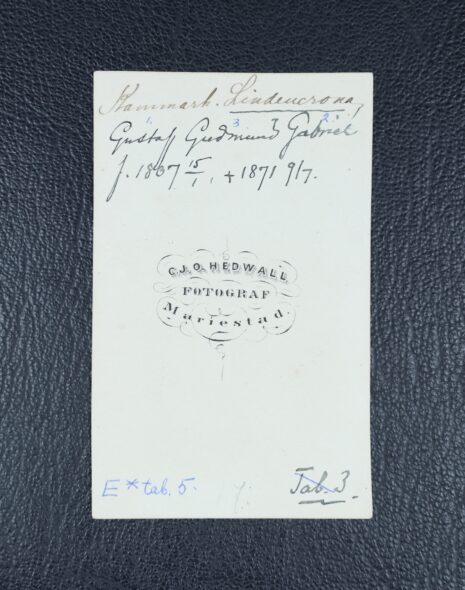 Kammarh. Lindencrona,
1 3 2
Gustaf Gudmund Gabriel
f. 1807 15/1, + 1871 9/7.
C.J.O. HEDWALL
FOTOGRAF
Mariestad.
E * tab. 5.
Tab. 3.